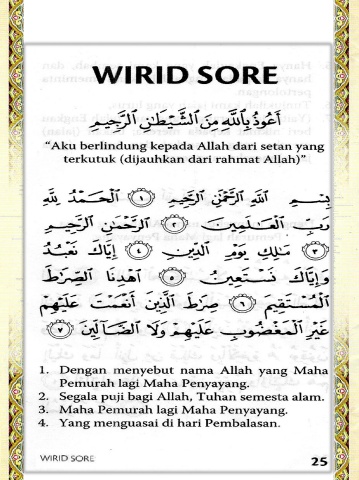 WIRID SORE
أَعُوْذُ بِاللَّهِ مِنَ الشَّيْطَانِ الرَّجِيْمِ
“Aku berlindung kepada Allah dari setan yang
terkutuk (dijauhkan dari rahmat Allah)”
بِسْمِ اللَّهِ الرَّحْمَٰنِ الرَّحِيمِ ١ الْحَمْدُ لِلَّهِ
رَبِّ الْعَالَمِينَ ٢ الرَّحْمَٰنِ الرَّحِيمِ
٣ مَالِكِ يَوْمِ الدِّينِ ٤ إِيَّاكَ نَعْبُدُ
وَإِيَّاكَ نَسْتَعِينُ ٥ اهْدِنَا الصِّرَاطَ
الْمُسْتَقِيمَ ٦ صِرَاطَ الَّذِينَ أَنْعَمْتَ عَلَيْهِمْ
غَيْرِ الْمَغْضُوبِ عَلَيْهِمْ وَلَا الضَّالِّينَ ٧
1. Dengan menyebut nama Allah yang Maha
Pemurah lagi Maha Penyayang.
2. Segala puji bagi Allah, Tuhan semesta alam.
3. Maha Pemurah lagi Maha Penyayang.
4. Yang menguasai di hari Pembalasan.
WIRID SORE 25